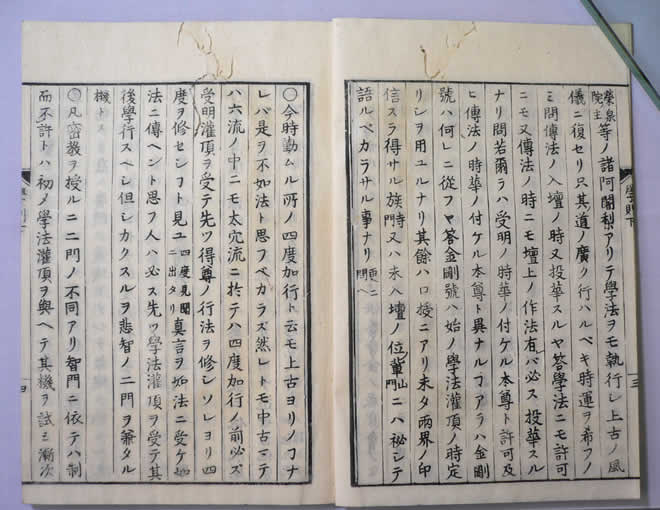 榮泉院主等ノ諸阿闍梨アリテ學法ヲモ執行シ上古ノ風
儀ニ復セリ只其道ノ廣ク行ハルベキ時運ヲ希フノ
ミ問傳法ノ入壇ノ時又投華スルヤ答學法ニモ許可
ニモ又傳法ノ時ニモ壇上ノ作法有バ必ス投華スル
ナリ問若爾ラハ受明ノ時華ノ付ケル本尊ト許可及
ヒ傳法ノ時華ノ付ケル本尊ト異ナルヿアラハ金剛
號ハ何レニ從フヤ答金剛號ハ始ノ學法灌頂ノ時定
リシヲ用ユルナリ其餘ハ口授ニアリ未タ兩界ノ印
信スラ得サル族又ハ未入壇ノ位ニハ祕シテ
語ルベカラサル事ナリ更ニ問ヘ
〇今時勤ムル所ノ四度加行ト云モ上古ヨリノヿナ
レバ是ヲ不如法ト思フベカラズ然レトモ中古マテ
ハ六流ノ中ニモ太穴流ニ於テハ四度加行ノ前必ズ
受明灌頂ヲ受テ先ツ得尊ノ行法ヲ修シソレヨリ四
度ヲ修セシヿト見ユ四度見聞ニ出タリ真言ヲ如法ニ受ケ如
法ニ傳ヘント思フ人ハ必ス先ツ學法灌頂ヲ受テ其
後學行スヘシ但シカクスルヲ悲智ノ二門ヲ兼タル
機トス
〇凡密教ヲ授ルニ二門ノ不同アリ智門ニ依テハ制
而不許トハ初メ學法灌頂ヲ與ヘテ其機ヲ試ミ漸次
學則下
三
四